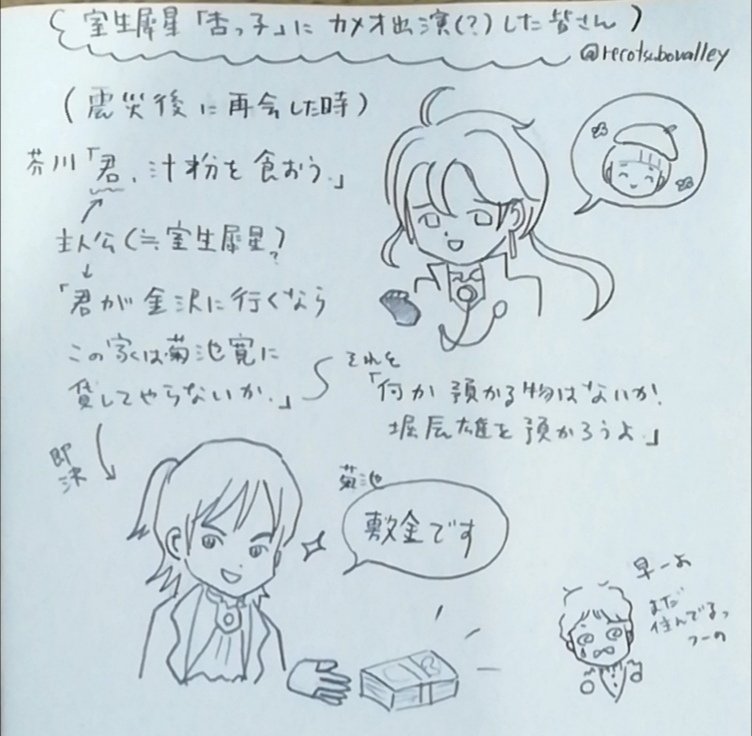 室生犀星「杏っ子」に カメオ出演(?)した皆さん
@recotsubovalley
(震災後に再会した時)
芥川「君、汁粉を食おう。」
主人公(≒室生犀星?)
「君が金沢に行くなら
この家は菊池寛に
貸してやらないか。」
それと
「何か預かる物はないか。
堀辰雄を預かろうよ。」
即決
菊池
敷金です
早ーよ
まだ
住んでるっ
つーの